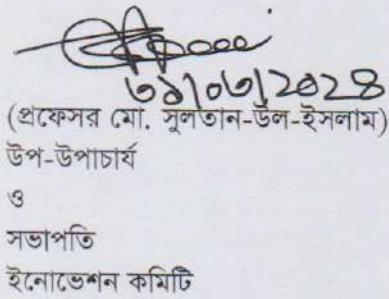 ৩১/০৩/২০২৪
(প্রফেসর মো. সুলতান-উল-ইসলাম)
উপ-উপাচার্য
ও
সভাপতি
ইনোভেশন কমিটি